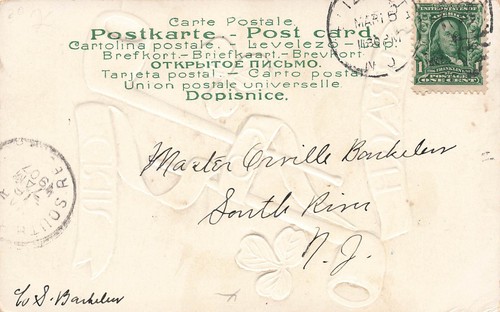 Carte Postale.
Postkarte - Post card.
Cartolina postale. - Levelezo - Lap
Brefkort.-Briefkaart.-Brevkort
ОТКРЫТОЕ ПИСЬМО.
Tarjeta postal. - Carto postal
Union postale universelle
Dopisnice.
MAR 18
N J
UNITED STATES OF AMERICA
FRANKLIN
POSTAGE ONE CENT
SOUTH
RE
AM
1907
Master Orville Barkelew
South River
N. J.
c/o S. Barkelew